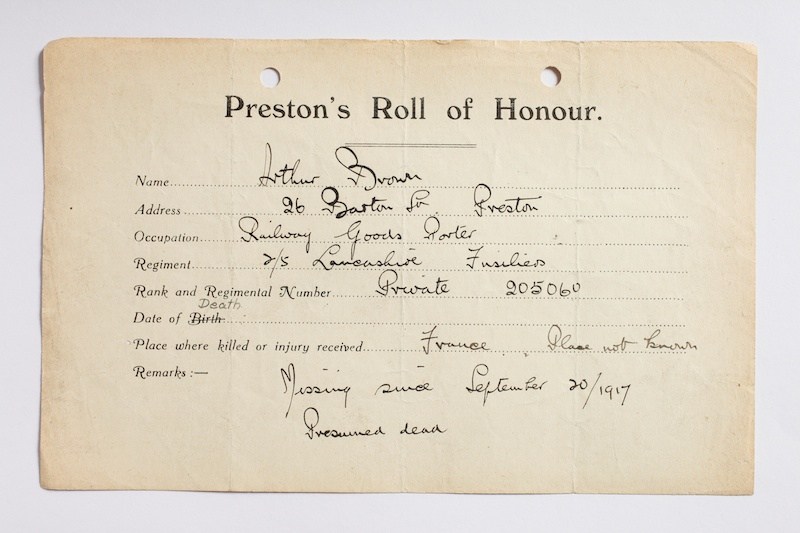 Preston's Roll of Honour.
Name Arthur Brown
Address 26 Barton St. Preston
Occupation Railway Goods Porter
Regiment 2/5 Lancashire Fusiliers
Rank and Regimental Number Private 205060
Death
Date of Birth
Place where killed or injury received France Place not known
Remarks:—
Missing since September 20/1917
Presumed dead